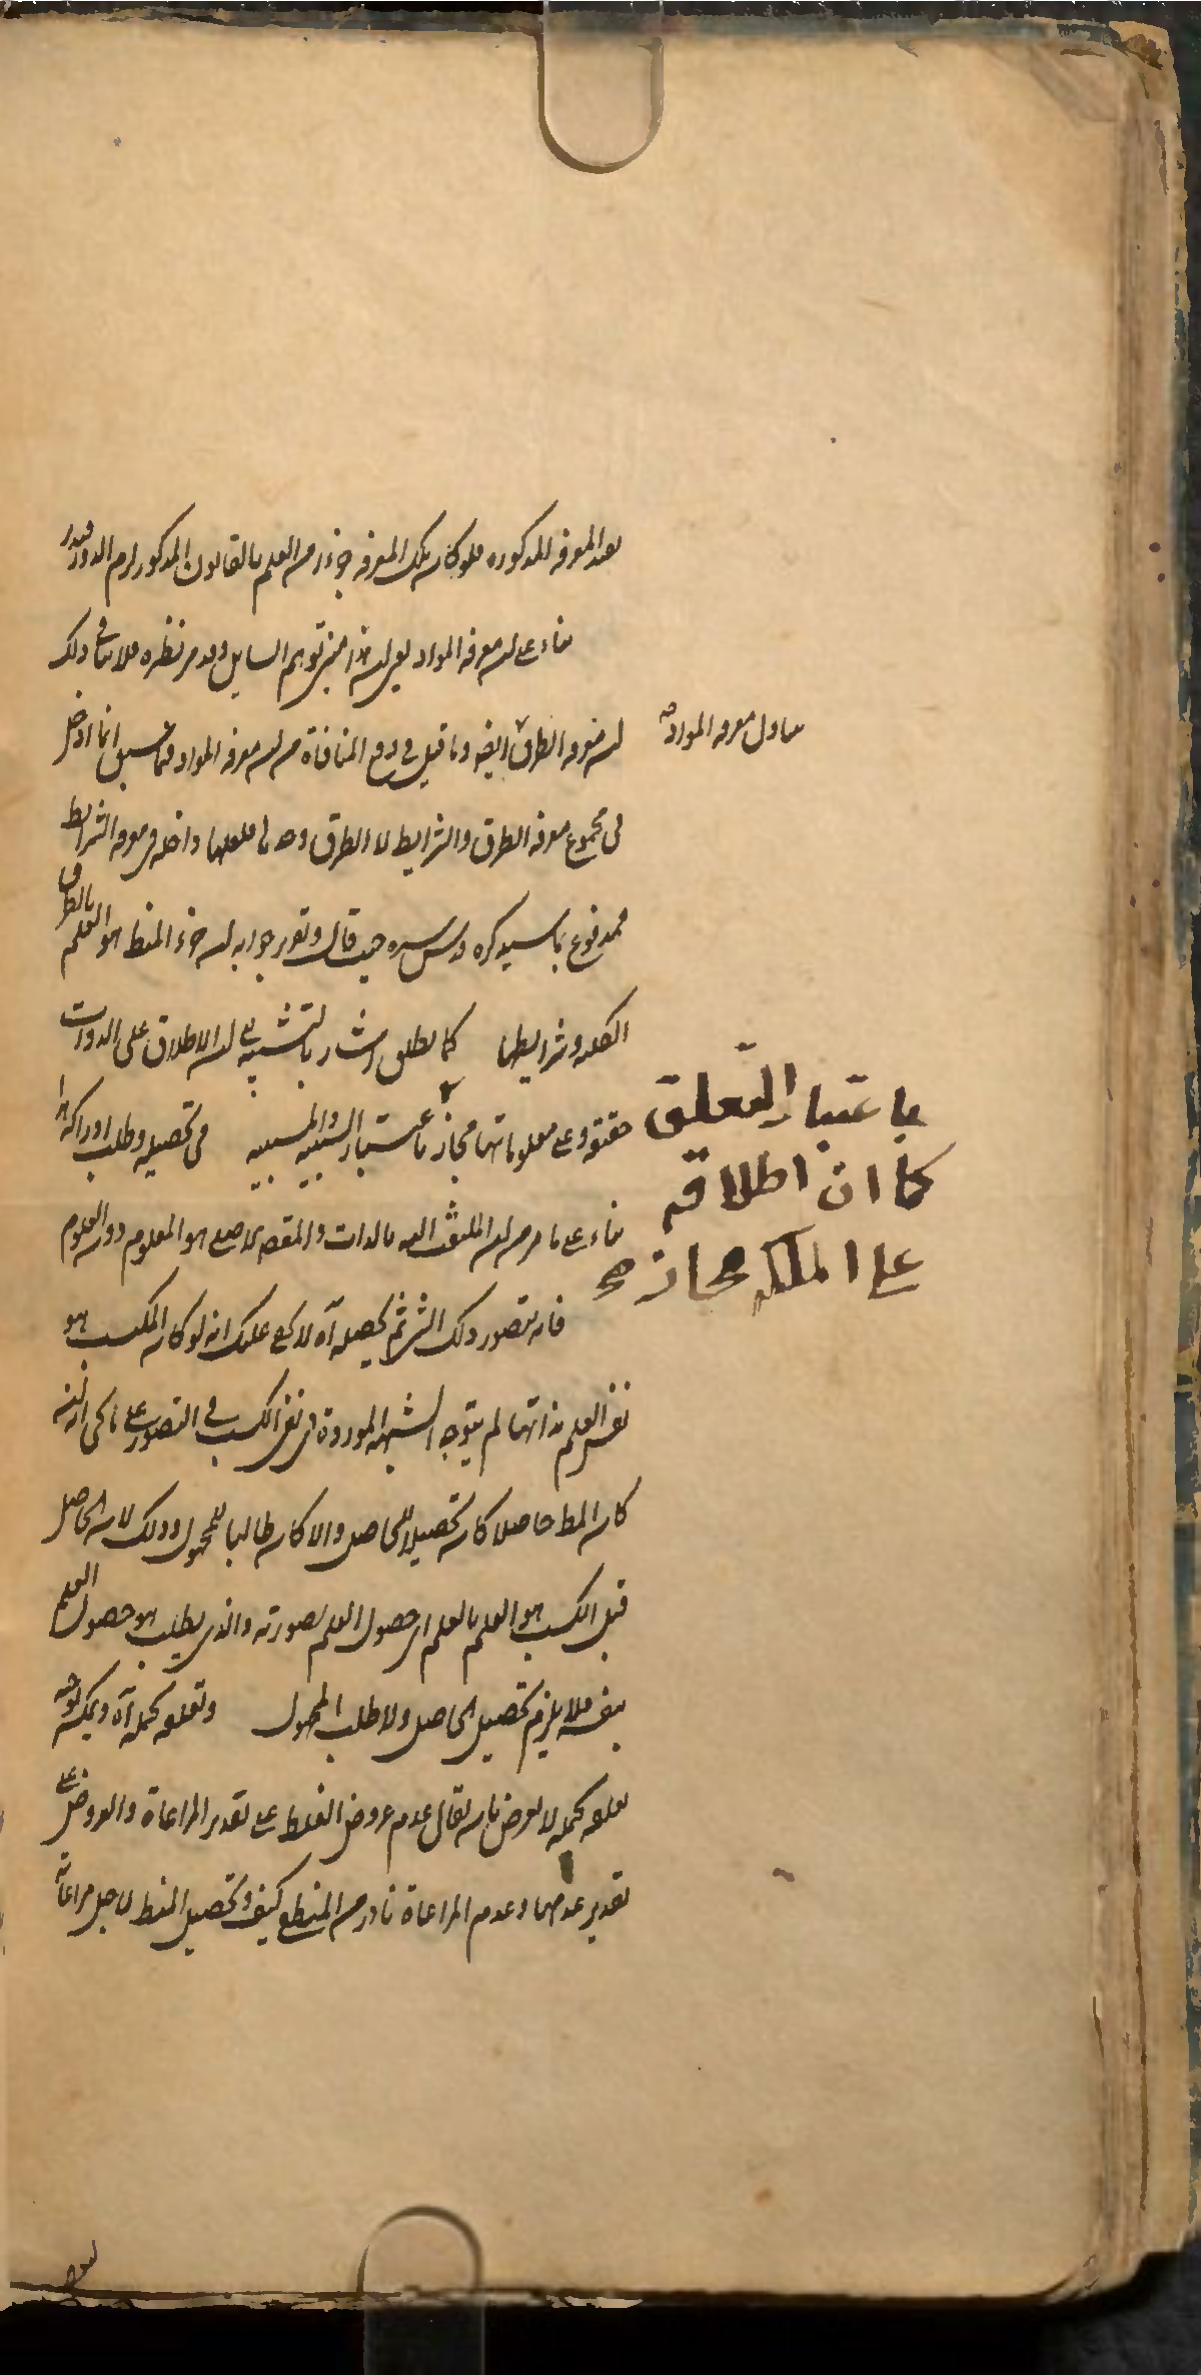 بعد المعرفة المذكورة فلو كان تلك المعرفة جزءا من العلم بالقانون المذكور لزم الدور
بناء على ان معرفة المواد يعني ان هذا منشئ توهم السايل وقد مر نظيره فلا ينافي ذلك
ان معرفة الطرق ايضا وما قيل في دفع المنافاة من ان معرفة المواد فيما سبق انما ادخل
يتناول معرفة المواد صح
في مجموع معرفة الطرق والشرايط لا الطرق وحدها فلعلها داخلة في معرفة الشرايط
فمدفوع بما سيذكره قدس سره حيث قال وتقرير جوابه ان جزء المنط هو العلم بالطرق
الكلية وشرايطها كما يطلق اشار بالتشبيه الى ان الاطلاق على الادراكات
حقيقة وعلى معلوماتها مجاز باعتبار السببية والمسببية في تحصيله وطلب ادراكه
باعتبار التعلق
كما ان اطلاقه
على الملكة مجاز صح
بناء على ما مر من ان الملتفت اليه بالذات والمقصود هو المعلوم دون العلوم
فانه يتصور ذلك الشئ ثم يحصله آه لا يخفى عليك انه لو كان المكتسب هو
نفس العلم بذاتها لم يتوجه الشبهة الموردة في نفي الكسب في التصور على ما يحى
كان المط حاصلا كان تحصيلا للحاصل والا كان طالبا للمجهول وذلك لان الحاصل
قبل الكسب هو العلم بالعلم اي حصول العلم بصورته والذي يطلب هو حصول العلم
بنفسه فلا يلزم تحصيل الحاصل ولا طلب المجهول وتعلقه بحمله آه ويمكن توجيه
تعلقه بحمله لا يعرض بان يقال عدم عروض الغلط على تقدير المراعاة والعروض على
تقدير عدمها وعدم المراعاة نادر من المنطقي كيف وتحصيل المنط لاجل مراعاته